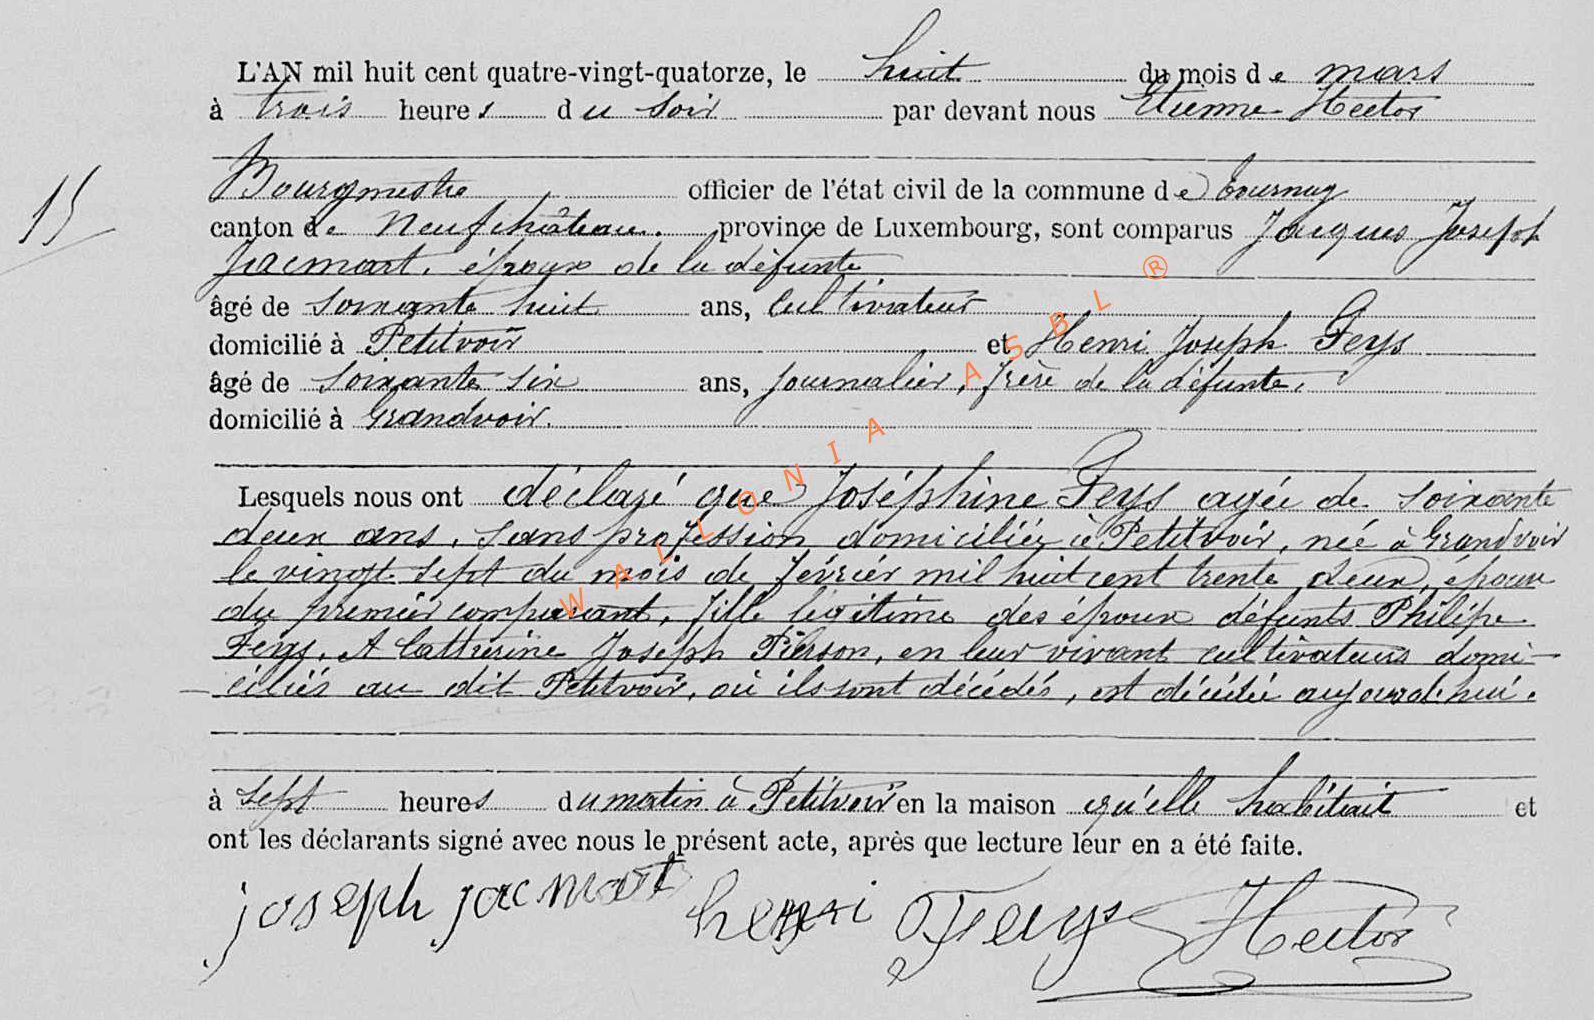 L'AN mil huit cent quatre-vingt-quatorze, le huit du mois de mars
à trois heures du soir par devant nous Etienne Hector
Bourgmestre officier de l'état civil de la commune de Tournay
15
canton de Neufchâteau. province de Luxembourg, sont comparus Jacques Joseph
Jacmart, époux de la défunte
âgé de soixante huit ans, cultivateur
domicilié à Petitvoir et Henri Joseph Feys
âgé de soixante six ans, journalier, frère de la défunte.
domicilié à Grandvoir.
Lesquels nous ont déclaré que Joséphine Feys agée de soixante
deux ans, sans profession domiciliée à Petitvoir, née à Grandvoir
le vingt sept du mois de février mil huit cent trente deux, épouse
du premier comparant, fille légitime des époux défunts Philipe
Feys, et Catherine Joseph Pierson, en leur vivant cultivateurs domi-
ciliés au dit Petitvoir, où ils sont décédés, est décédée aujourd'hui.
à sept heures du matin à Petitvoir en la maison qu'elle habitait et
ont les déclarants signé avec nous le présent acte, après que lecture leur en a été faite.
joseph jacmart henri Feys Hector
WALLONIA ASBL ®